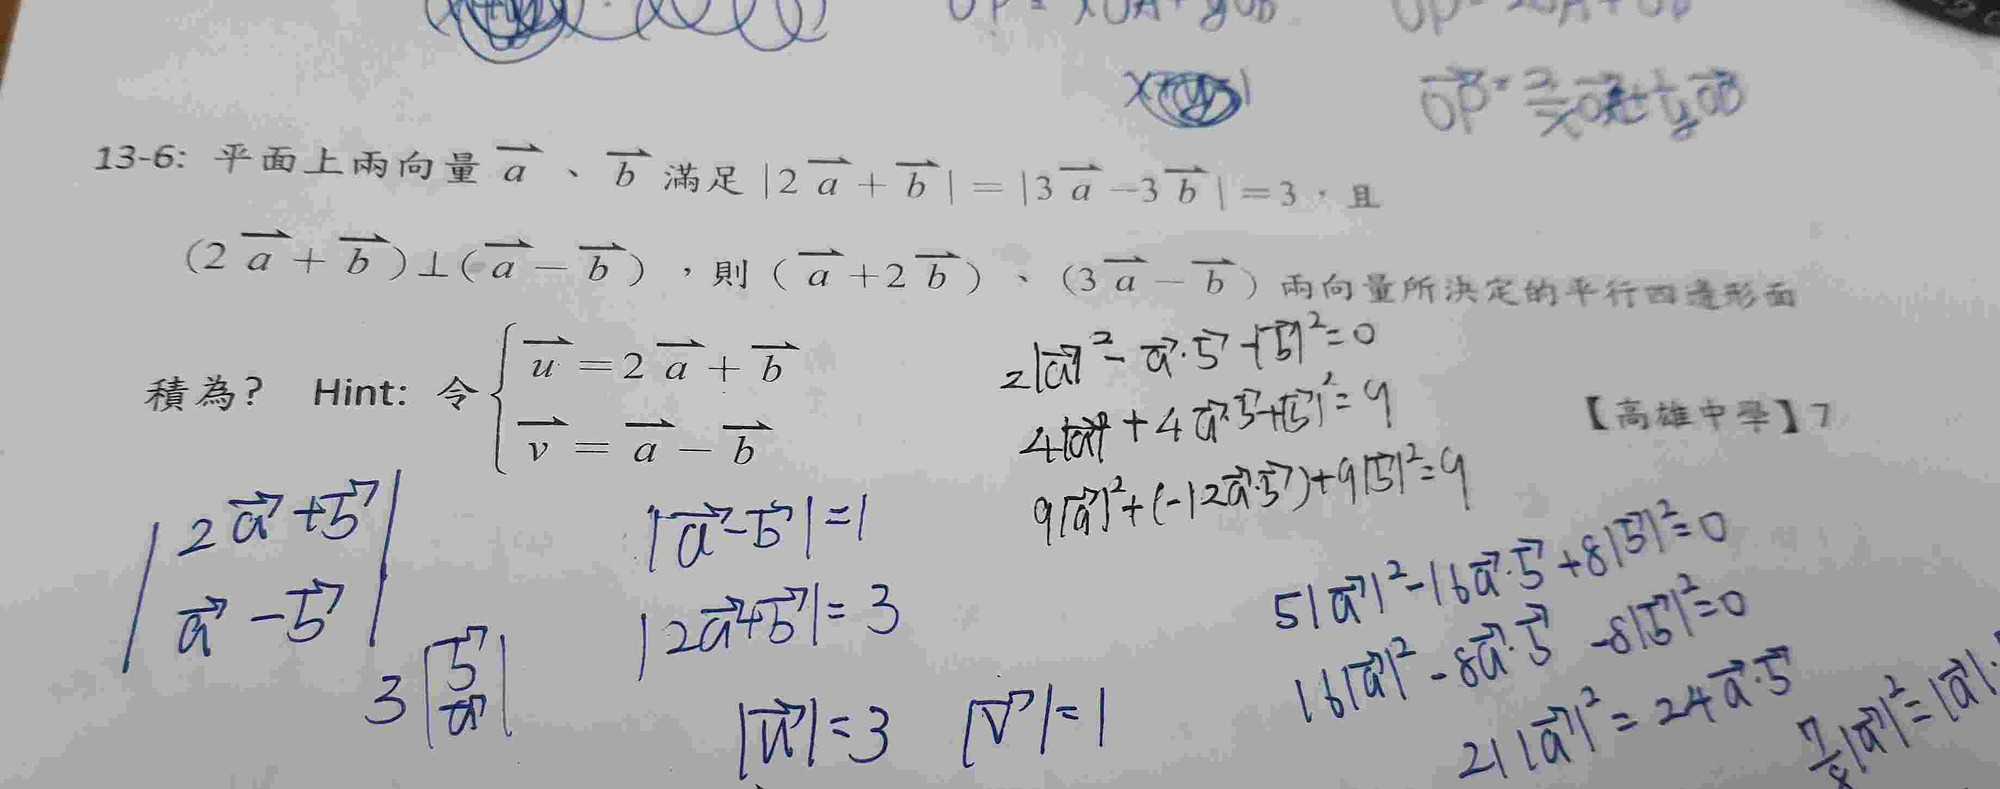 x 1
13-6: 平面上兩向量 a⃗ 、 b⃗ 滿足 |2a⃗ + b⃗| = |3a⃗ −3b⃗| =3，且
(2a⃗ + b⃗)⊥(a⃗ − b⃗)，則 (a⃗ +2b⃗)、(3a⃗ − b⃗) 兩向量所決定的平行四邊形面
積為? Hint: 令 { u⃗ =2a⃗ + b⃗
v⃗ = a⃗ − b⃗
【高雄中學】7
2|a⃗|² − a⃗·b⃗ −|b⃗|²=0
4|a⃗|² + 4a⃗·b⃗+|b⃗|²=9
9|a⃗|²+(-12a⃗·b⃗)+9|b⃗|²=9
|2a⃗+b⃗
a⃗ −b⃗|
3|b⃗
a⃗|
|a⃗−b⃗|=1
|2a⃗+b⃗|=3
|u⃗|=3 |v⃗|=1
5|a⃗|²−16a⃗·b⃗+8|b⃗|²=0
16|a⃗|²−8a⃗·b⃗ −8|b⃗|²=0
21|a⃗|²=24a⃗·b⃗
|a⃗|²=|a⃗|·